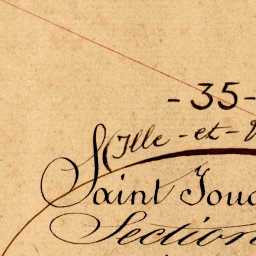 - 35 -
(Ille - et - V
Saint Joua
Section